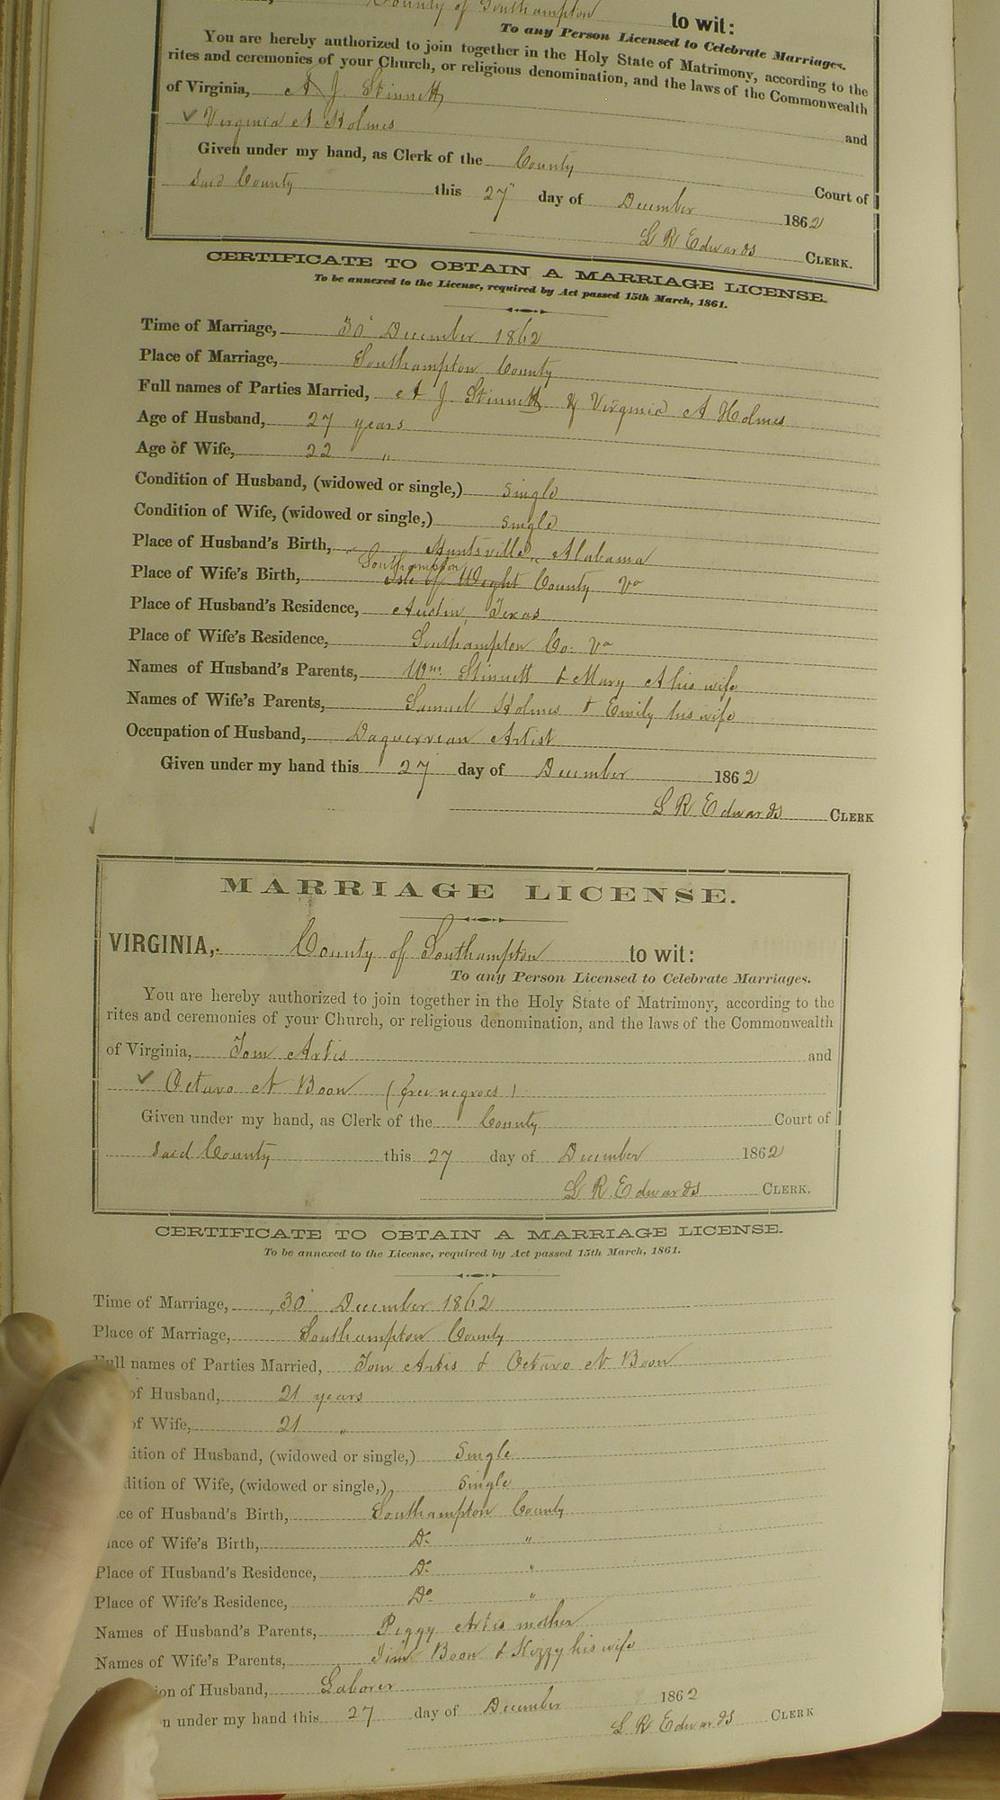 County of Southampton to wit:
To any Person Licensed to Celebrate Marriages.
You are hereby authorized to join together in the Holy State of Matrimony, according to the
rites and ceremonies of your Church, or religious denomination, and the laws of the Commonwealth
of Virginia, A J Stinnett and
✓ Virginia A Holmes
Given under my hand, as Clerk of the County Court of
said County this 27" day of December 1862
L R Edwards CLERK.
CERTIFICATE TO OBTAIN A MARRIAGE LICENSE.
To be annexed to the License, required by Act passed 15th March, 1861.
Time of Marriage, 30" December 1862
Place of Marriage, Southampton County
Full names of Parties Married, A J Stinnett & Virginia A Holmes
Age of Husband, 27 years
Age of Wife, 22 "
Condition of Husband, (widowed or single,) single
Condition of Wife, (widowed or single,) single
Place of Husband's Birth, Huntsville, Alabama
Southampton
Place of Wife's Birth, Isle of Wight County Va
Place of Husband's Residence, Austin, Texas
Place of Wife's Residence, Southampton Co. Va
Names of Husband's Parents, Wm. Stinnett & Mary A his wife
Names of Wife's Parents, Samuel Holmes & Emily his wife
Occupation of Husband, Daguerrean Artist
Given under my hand this 27 day of December 1862
L R Edwards CLERK
MARRIAGE LICENSE.
VIRGINIA,: County of Southampton to wit:
To any Person Licensed to Celebrate Marriages.
You are hereby authorized to join together in the Holy State of Matrimony, according to the
rites and ceremonies of your Church, or religious denomination, and the laws of the Commonwealth
of Virginia, Tom Artis and
✓ Octavo N Boon (free negroes)
Given under my hand, as Clerk of the County Court of
said County this 27 day of December 1862
L R Edwards CLERK.
CERTIFICATE TO OBTAIN A MARRIAGE LICENSE.
To be annexed to the License, required by Act passed 15th March, 1861.
Time of Marriage, 30" December 1862
Place of Marriage, Southampton County
Full names of Parties Married, Tom Artis & Octavo N Boon
of Husband, 21 years
of Wife, 21 "
ition of Husband, (widowed or single,) Single
dition of Wife, (widowed or single,) Single
ce of Husband's Birth, Southampton County
lace of Wife's Birth, Do "
Place of Husband's Residence, Do "
Place of Wife's Residence, Do "
Names of Husband's Parents, Peggy Artis mother
Names of Wife's Parents, Jim Boon & Kizzy his wife
ion of Husband, Laborer
n under my hand this 27 day of December 1862
L R Edwards CLERK